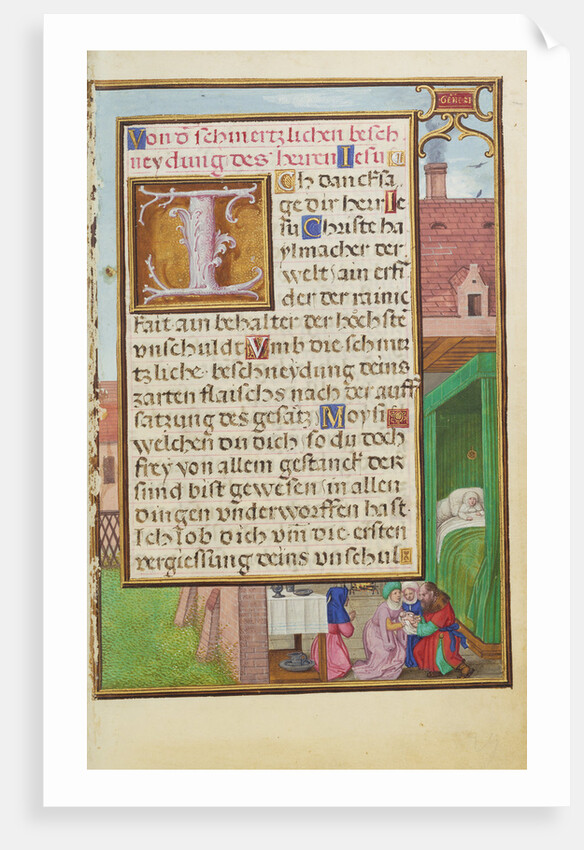 GENE·21
Von ð schmertzlichen besch
neydung des herren Iesu
Ich dancksa
ge dir herr Ie
su Christe ha
ylmacher der
welt ain erfi
der der rainic
kait ain behalter der höchstē
vnschuldt Vmb die schmer
tzliche beschneydung deins
zarten flaischs nach der auff
satzung des gesatz Moysi
welchen du dich so du doch
frey von allem gestanck der
sund bist gewesen in allen
dingen vnderworffen hast
Ich lob dich vm̄ die ersten
vergiessung deins vnschul